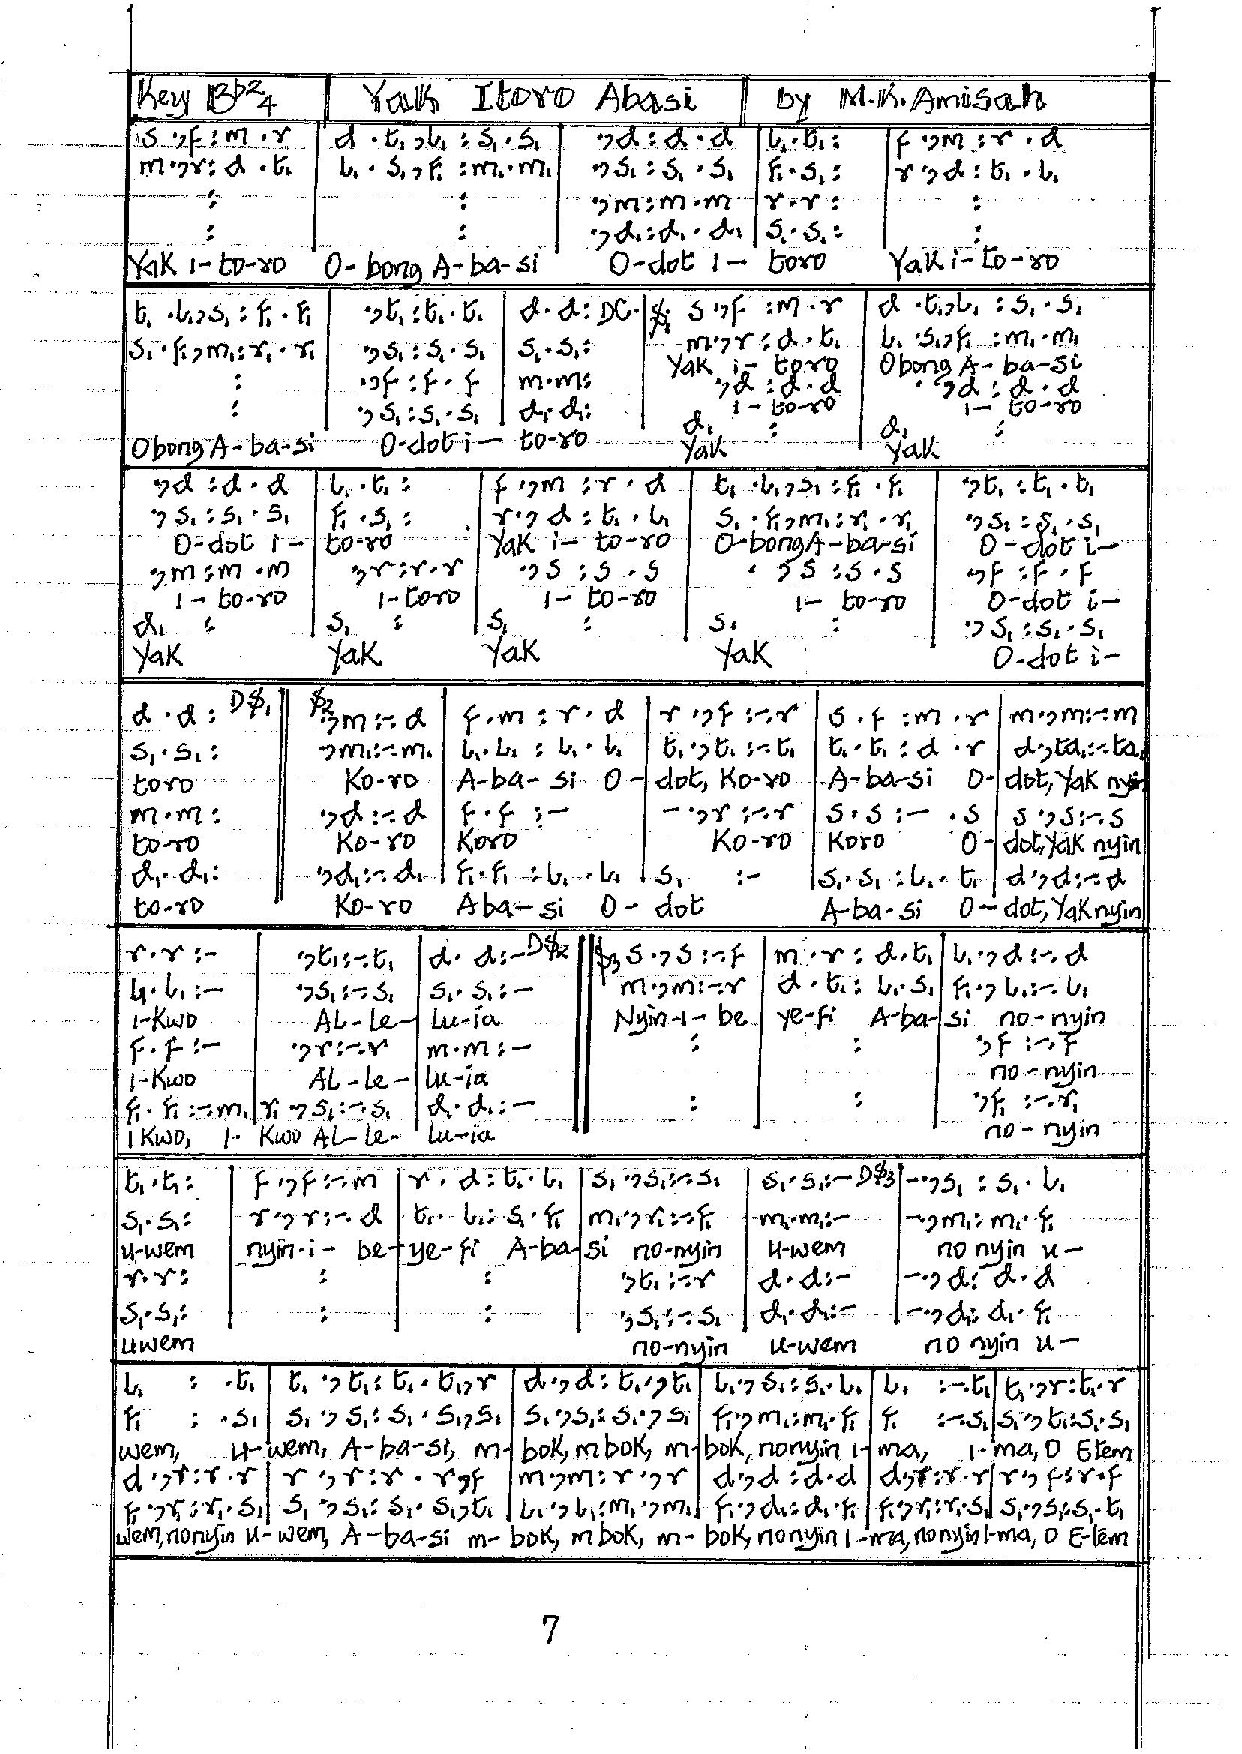 Key Bb 2/4 | Yak Itoro Abasi | by M.K. Amisah
s .,f : m . r | d . t₁,l₁ : s₁ . s₁ | .,d : d . d | l₁ . t₁ : | f .,m : r . d
m .,r : d . t₁ | l₁ . s₁,f₁ : m₁ . m₁ | .,s₁ : s₁ . s₁ | f₁ . s₁ : | r .,d : t₁ . l₁
: | : | .,m : m . m | r . r : | :
: | : | .,d₁ : d₁ . d₁ | s₁ . s₁ : | :
Yak i-to-ro O-bong A-ba-si O-dot i- toro Yak i-to-ro
t₁ . l₁,s₁ : f₁ . f₁ | .,t₁ : t₁ . t₁ | d . d : DC. | $1 s .,f : m . r | d . t₁,l₁ : s₁ . s₁
s₁ . f₁,m₁ : r₁ . r₁ | .,s₁ : s₁ . s₁ | s₁ . s₁ : | m .,r : d . t₁ | l₁ . s₁,f₁ : m₁ . m₁
Yak i- toro Obong A-ba-si
: | .,f : f . f | m . m : | .,d : d . d | .,d : d . d
i- to-ro i- to-ro
: | .,s₁ : s₁ . s₁ | d₁ . d₁ : | d₁ : | d₁ :
Obong A-ba-si O-dot i- to-ro Yak Yak
.,d : d . d | l₁ . t₁ : | f .,m : r . d | t₁ . l₁,s₁ : f₁ . f₁ | .,t₁ : t₁ . t₁
.,s₁ : s₁ . s₁ | f₁ . s₁ : | r .,d : t₁ . l₁ | s₁ . f₁,m₁ : r₁ . r₁ | .,s₁ : s₁ . s₁
O-dot i- to-ro Yak i- to-ro O-bong A-ba-si O-dot i-
.,m : m . m | .,r : r . r | .,s : s . s | .,s : s . s | .,f : f . f
i- to-ro i-toro i- to-ro i- to-ro O-dot i-
d₁ : | s₁ : | s₁ : | s₁ : | .,s₁ : s₁ . s₁
Yak Yak Yak Yak O-dot i-
d . d : D$1 || $2 .,m :-. d | f . m : r . d | r .,f :-. r | s . f : m . r | m .,m :-. m
s₁ . s₁ : || .,m₁ :-. m₁ | l₁ . l₁ : l₁ . l₁ | t₁ .,t₁ :-. t₁ | t₁ . t₁ : d . r | d .,ta₁ :-. ta₁
toro Ko-ro A-ba-si O- dot, Ko-ro A-ba-si O- dot, Yak nyin
m . m : || .,d :-. d | f . f :- | -.,r :-. r | s . s :- . s | s .,s :-. s
to-ro Ko-ro Koro Ko-ro Koro O- dot, Yak nyin
d₁ . d₁ : || .,d₁ :-. d₁ | f₁ . f₁ : l₁ . l₁ | s₁ :- | s₁ . s₁ : l₁ . t₁ | d .,d :-. d
to-ro Ko-ro Aba-si O- dot A-ba-si O-dot, Yak nyin
r . r :- | .,t₁ :-. t₁ | d . d :- D$2 || $3 s .,s :-. f | m . r : d . t₁ | l₁ .,d :-. d
l₁ . l₁ :- | .,s₁ :-. s₁ | s₁ . s₁ :- || m .,m :-. r | d . t₁ : l₁ . s₁ | f₁ .,l₁ :-. l₁
i-Kwo AL-le- lu-ia Nyin-i-be ye-fi A-ba-si no-nyin
f . f :- | .,r :-. r | m . m :- || : | : | .,f :-. f
i-Kwo AL-le- lu-ia no-nyin
f₁ . f₁ :-. m₁ | r₁ .,s₁ :-. s₁ | d₁ . d₁ :- || : | : | .,f₁ :-. r₁
i Kwo, i- Kwo AL-le- lu-ia no-nyin
t₁ . t₁ : | f .,f :-. m | r . d : t₁ . l₁ | s₁ .,s₁ :-. s₁ | s₁ . s₁ :- D$3 | -.,s₁ : s₁ . l₁
s₁ . s₁ : | r .,r :-. d | t₁ . l₁ : s₁ . f₁ | m₁ .,r₁ :-. f₁ | m₁ . m₁ :- | -.,m₁ : m₁ . f₁
u-wem nyin-i- be-ye-fi A-ba-si no-nyin u-wem no nyin u-
r . r : | : | : | .,t₁ :-. r | d . d :- | -.,d : d . d
s₁ . s₁ : | : | : | .,s₁ :-. s₁ | d₁ . d₁ :- | -.,d₁ : d₁ . f₁
uwem no-nyin u-wem no nyin u-
l₁ : . t₁ | t₁ .,t₁ : t₁ . t₁,r | d .,d : t₁ .,t₁ | l₁ .,s₁ : s₁ . l₁ | l₁ :-. t₁ | t₁ .,r : t₁ . r
f₁ : . s₁ | s₁ .,s₁ : s₁ . s₁,s₁ | s₁ .,s₁ : s₁ .,s₁ | f₁ .,m₁ : m₁ . f₁ | f₁ :-. s₁ | s₁ .,t₁ : s₁ . s₁
wem, u-wem, A-ba-si, m-bok, mbok, m-bok, nonyin i-ma, i-ma, O Etem
d .,r : r . r | r .,r : r . r,f | m .,m : r .,r | d .,d : d . d | d .,r : r . r | r .,f : r . f
f₁ .,r₁ : r₁ . s₁ | s₁ .,s₁ : s₁ . s₁,t₁ | l₁ .,l₁ : m₁ .,m₁ | f₁ .,d₁ : d₁ . f₁ | f₁ .,r₁ : r₁ . s₁ | s₁ .,s₁ : s₁ . t₁
wem, nonyin u-wem, A-ba-si m-bok, mbok, m-bok, nonyin i-ma, nonyin i-ma, O E-tem
7